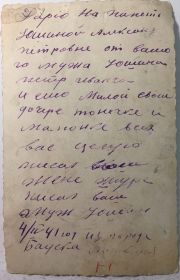 Дарю На Память
Юшиной Александ
Петровне от вашо
го Мужа Юшина
Петр Иванов
и ешо Милой своей
дочере тонечке и
Мапоньке всех
вас целую
писал
Жене
писал ваш
Муж Юшин
4/IV-41 год из города
Бауска